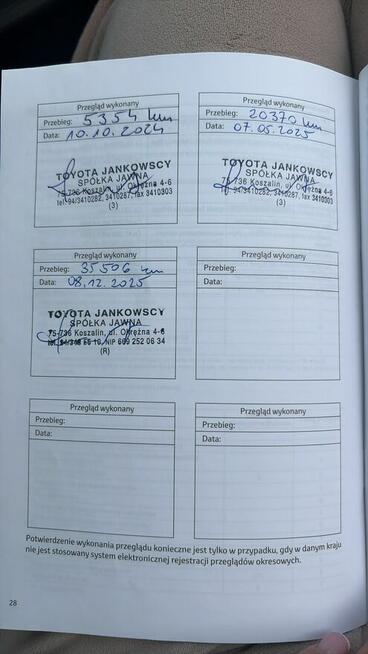 Przegląd wykonany
Przebieg: 5354 km
Data: 10.10.2024
TOYOTA JANKOWSCY
SPÓŁKA JAWNA
75-736 Koszalin, ul. Okrężna 4-6
tel. 94/3410282, 3410287, fax 3410303
(3)
Przegląd wykonany
Przebieg: 20370 km
Data: 07.05.2025
TOYOTA JANKOWSCY
SPÓŁKA JAWNA
75-736 Koszalin, ul. Okrężna 4-6
tel. 94/3410282, 3410287, fax 3410303
(3)
Przegląd wykonany
Przebieg: 35506 km
Data: 08.12.2025
TOYOTA JANKOWSCY
SPÓŁKA JAWNA
75-736 Koszalin, ul. Okrężna 4-6
NIP 669 252 06 34
(R)
Przegląd wykonany
Przebieg:
Data:
Przegląd wykonany
Przebieg:
Data:
Przegląd wykonany
Przebieg:
Data:
Potwierdzenie wykonania przeglądu konieczne jest tylko w przypadku, gdy w danym kraju
nie jest stosowany system elektronicznej rejestracji przeglądów okresowych.
28